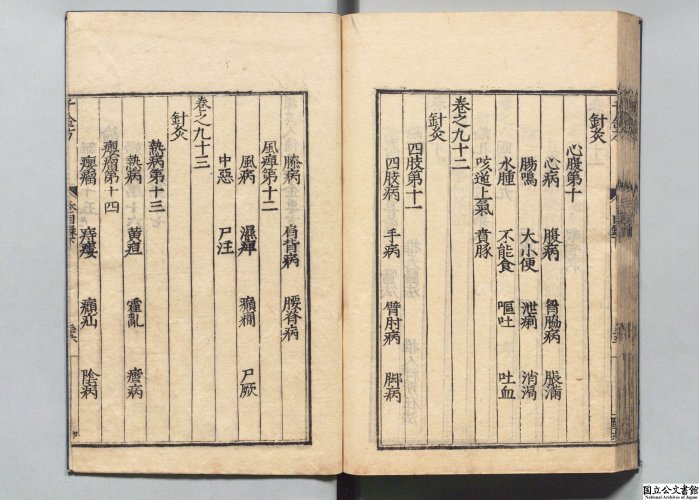 針灸
心腹第十
心病 腹病 胷脇病 脹滿
腸鳴 大小便 泄痢 消渴
水腫 不能食 嘔吐 吐血
咳逆上氣 賁豚
卷之九十二
針灸
四肢第十一
四肢病 手病 臂肘病 脚病
膝病 肩背病 腰脊病
風痺第十二
風病 濕痺 癲癇 尸厥
中惡 尸注
卷之九十三
針灸
熱病第十三
熱病 黃疸 霍亂 瘧病
癭瘤第十四
癭瘤 痔瘻 㿗疝 陰病
国立公文書館
National Archives of Japan